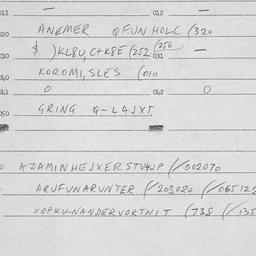 011 — 012 —
020 ANEMER QFUN HOLC (320
030 $ )KL8U, C+K8E (252 (256 031 —
060 KOROMI, SLES (010
061 0 062 0
050 GRING Q-LASXT
AZAMINHEJXERSTU4JP (/002070
ARUFUNARUNTER (/203020 (/065122
XOPKU-NANDERVORTNIT (738 (/135